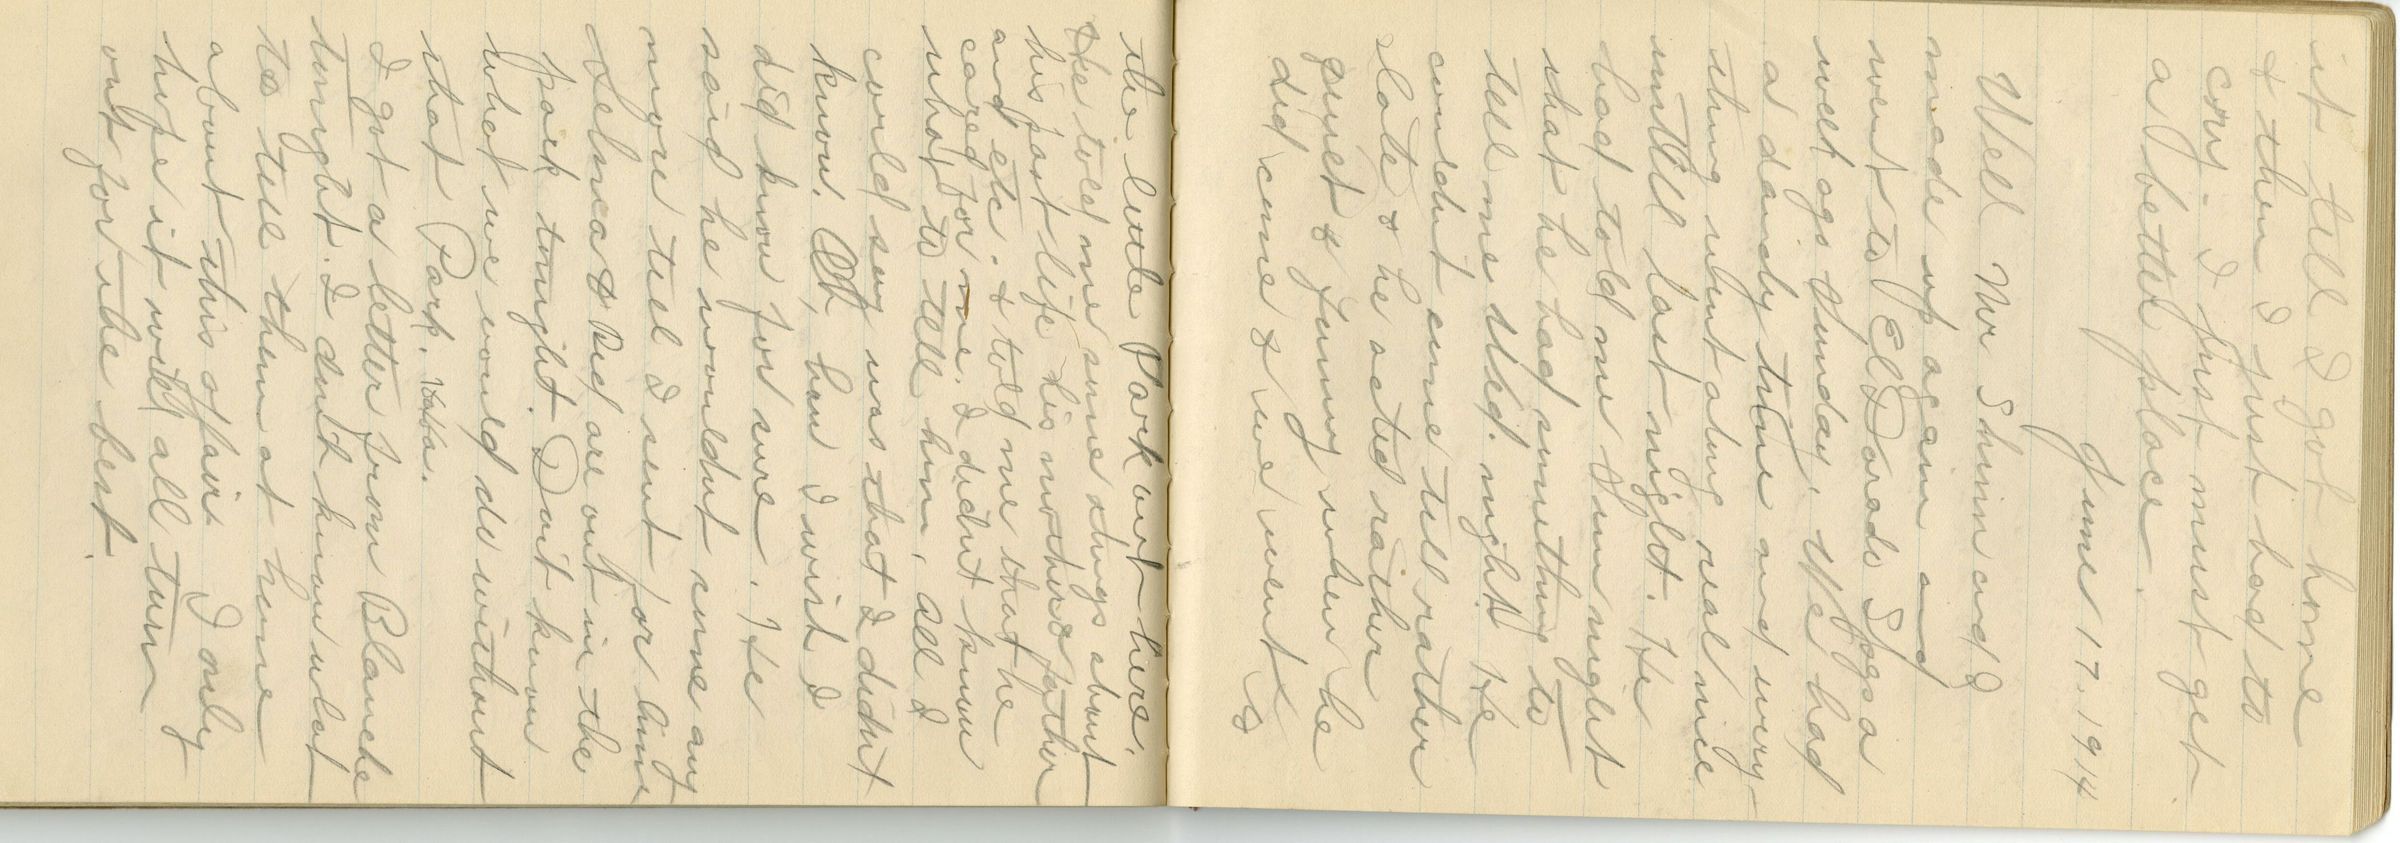 it till I got home
& then I just had to
cory - I just must get
a better place.
June 17. 1914
Well Mr Shinn and I
made up again and
went to El Dorado Sogs a
week ago Sunday, We had
a dandy time and every
thing went along real nice
untill last night. He
had told me Sun night
that he had something to
tell me Wed. night. He
couldnt come till rather
late & he acted rather
quiet & funny when he
did come & we went to
the little Park out here.
She told me some things about
his past life his mother & father
and etc. & told me that he
cared for me. I didnt know
what to tell him, all I
could say was that I didnt
know. Oh, how I wish I
did know for sure. He
said he wouldnt come any
more till I sent for him
Selma & Red are out in the
park tonight. Dont know
what we would do without
that Park. haha.
I got a letter from Blanche
tonight. I dont know what
to tell them at home
about this affair I only
hope it will all turn
out for the best.